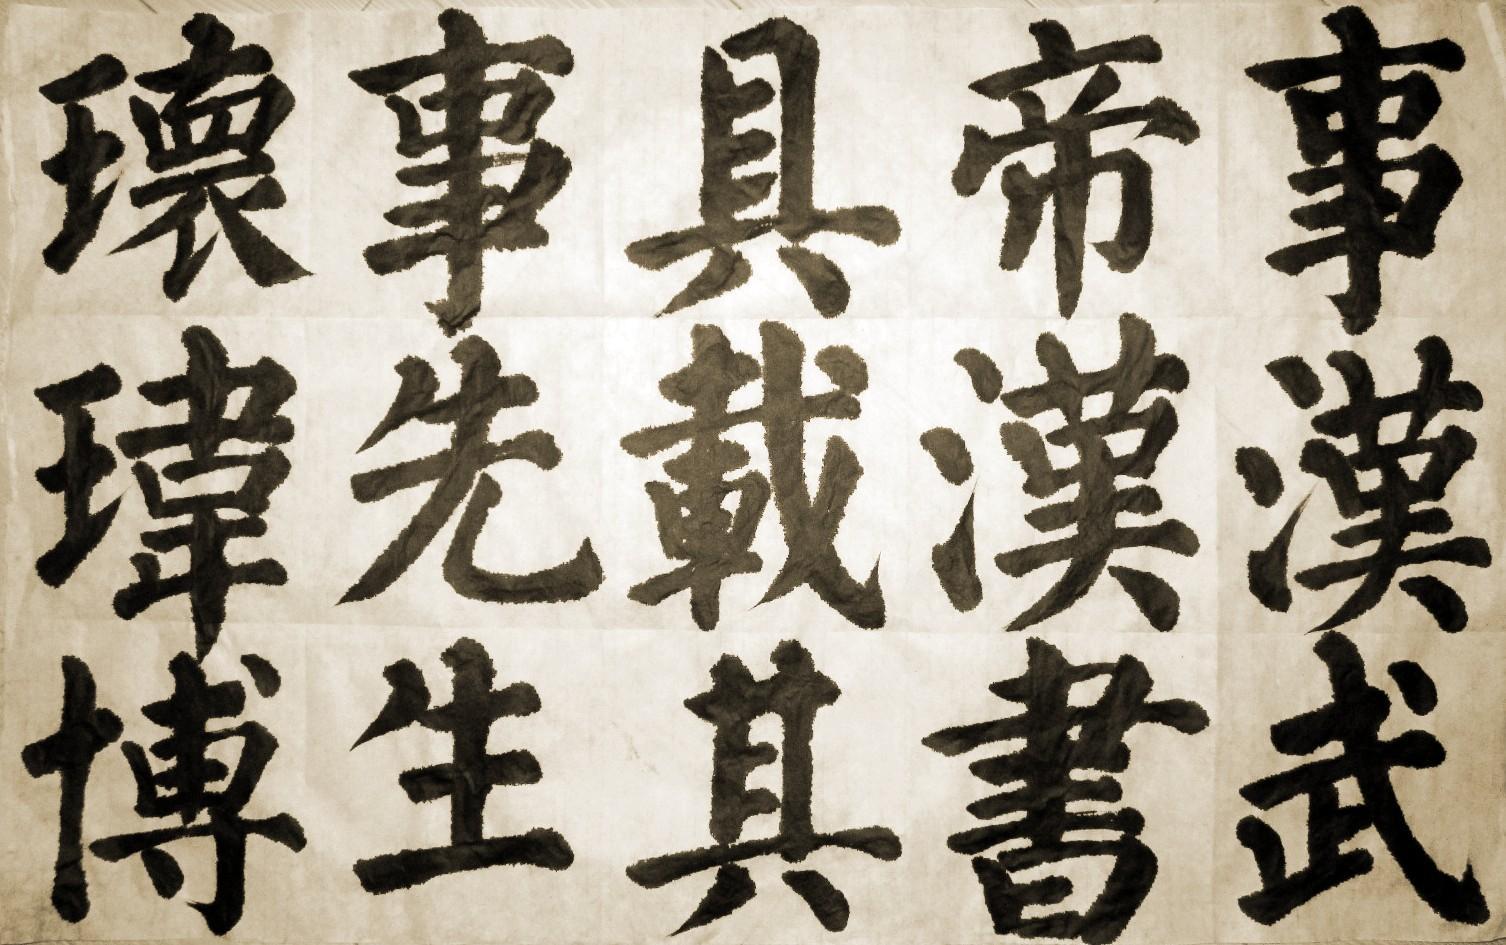 事漢武
帝漢書
具載其
事先生
瓌瑋博